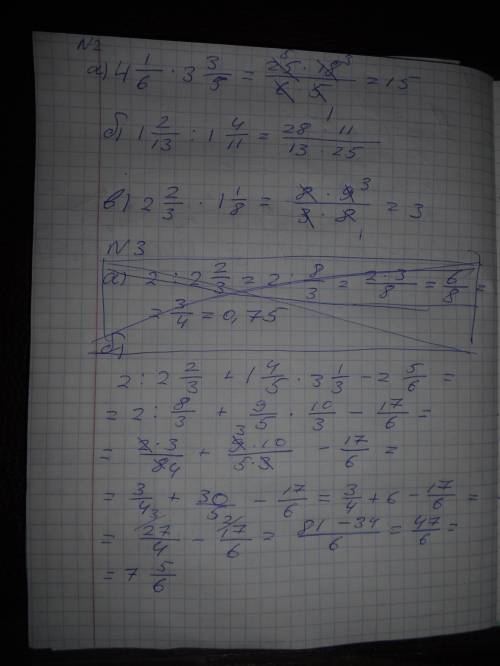 N2
а) 4 1/6 · 3 3/5 = 25 · 18 / 6 · 5 = 15
б) 1 2/13 : 1 4/11 = 28 · 11 / 13 · 25
в) 2 2/3 · 1 1/8 = 8 · 9 / 3 · 8 = 3
N3
а) 2 : 2 2/3 = 2 · 8/3 = 2·3/8 = 6/8 =
= 3/4 = 0,75
б)
2 : 2 2/3 + 1 4/5 · 3 1/3 - 2 5/6 =
= 2 : 8/3 + 9/5 · 10/3 - 17/6 =
= 2·3/8 + 9·10/5·3 - 17/6 =
= 3/4 + 30/5 - 17/6 = 3/4 + 6 - 17/6 =
= 27/4 - 17/6 = 81 - 34/6 = 47/6 =
= 7 5/6